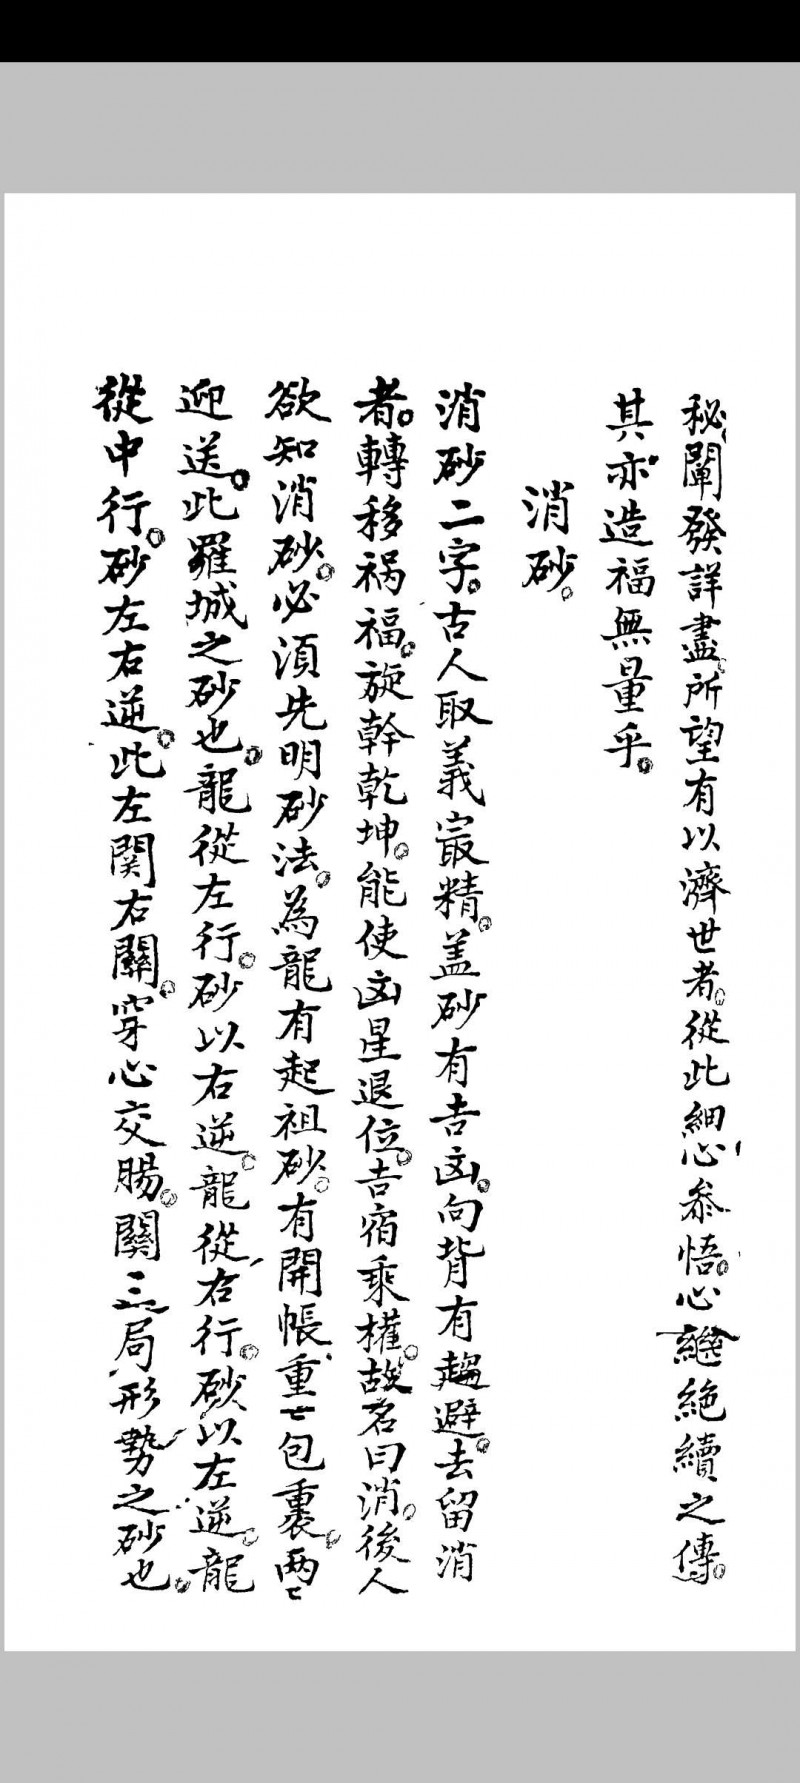 秘闡發詳盡。所望有以濟世者。從此細心參悟。心繼絕續之傳。
其亦造福無量乎。
消砂。
消砂二字。古人取義最精。盖砂有吉凶。向背有趨避。去留消
者。轉移禍福。旋幹乾坤。能使凶星退位。吉宿乘權。故名曰消。後人
欲知消砂。必須先明砂法。為龍有起祖砂。有開帳重〻包裹。兩〻
迎送。此羅城之砂也。龍從左行。砂以右逆。龍從右行。砂以左逆。龍
從中行。砂左右逆。此左関右關。穿心交腸。關三局形勢之砂也。